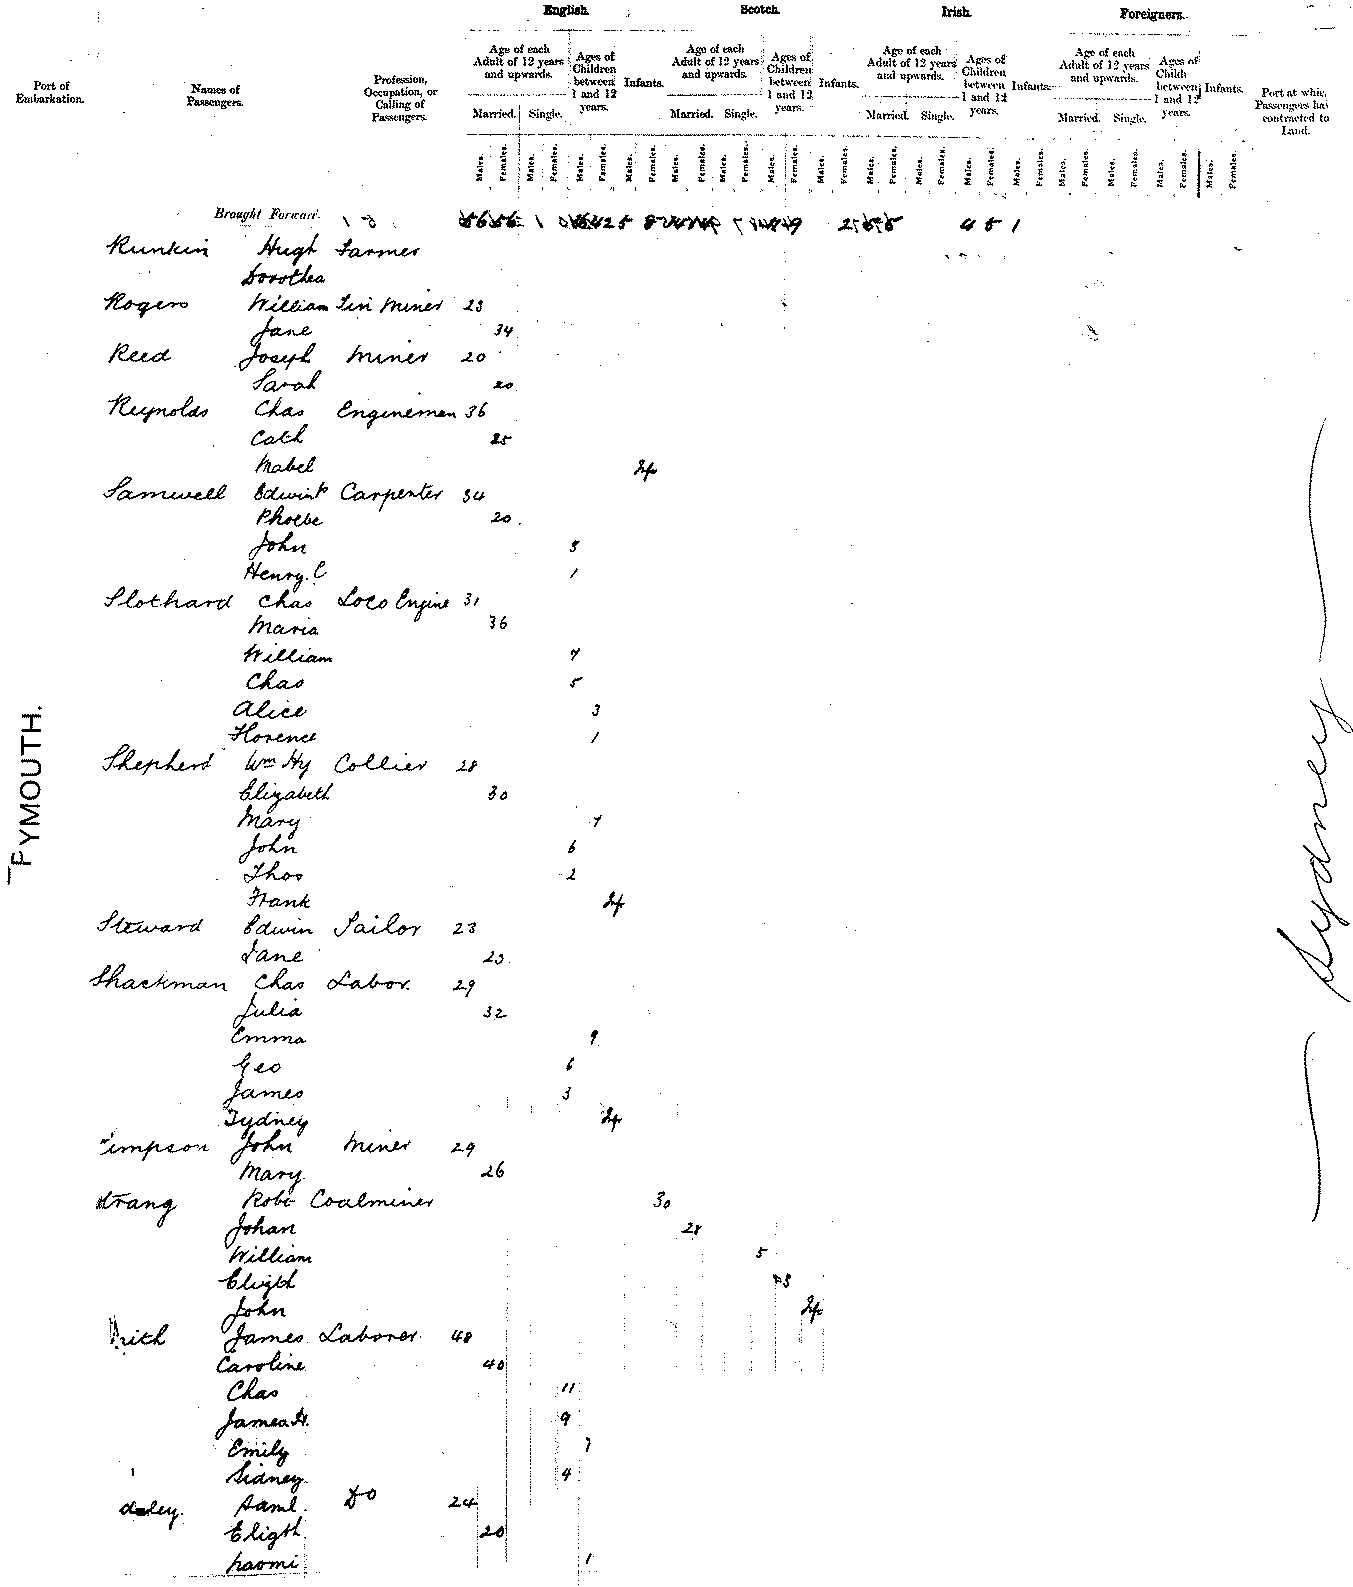 English. Scotch. Irish. Foreigners.
Port of Embarkation. Names of Passengers. Profession, Occupation, or Calling of Passengers. Age of each Adult of 12 years and upwards. Ages of Children between 1 and 12 years. Infants. Age of each Adult of 12 years and upwards. Ages of Children between 1 and 12 years. Infants. Age of each Adult of 12 years and upwards. Ages of Children between 1 and 12 years. Infants. Age of each Adult of 12 years and upwards. Ages of Child between 1 and 12 years. Infants. Port at whic Passengers ha contracted to Land.
Married. Single. Married. Single. Married. Single. Married. Single.
Males. Females. Males. Females. Males. Females. Males. Females. Males. Females. Males. Females. Males. Females. Males. Females. Males. Females. Males. Females. Males. Females. Males. Females. Males. Females. Males. Females. Males. Females. Males. Females.
Brought Forward. 4 5 1
Runkin Hugh Farmer
Dorothea
Rogers William Tin Miner 23
Jane 34
Reed Joseph Miner 20
Sarah 20
Reynolds Chas Enginemen 36
Cath 25
Mabel
Samwell Edwin Carpenter 34
Phoebe 20
John 3
Henry C 1
Slothard Chas Loco Engine 31
Maria 36
William 7
Chas 5
Alice 3
Florence 1
Shepherd Wm Hy Collier 28
Elizabeth 30
Mary 7
John 6
Thos 2
Frank
Steward Edwin Sailor 23
Jane 23
Shackman Chas Labor. 29
Julia 32
Emma 9
Geo 6
James 3
Sydney
impson John Miner 29
Mary 26
Strang Robt Coalminer 30
Johan 28
William 5
Elizth 3
John
James Laborer 48
Caroline 40
Chas 11
James H. 9
Emily 7
Sidney 4
Saml. Do 24
Elizth 20
Naomi 1
PYMOUTH.
Sydney